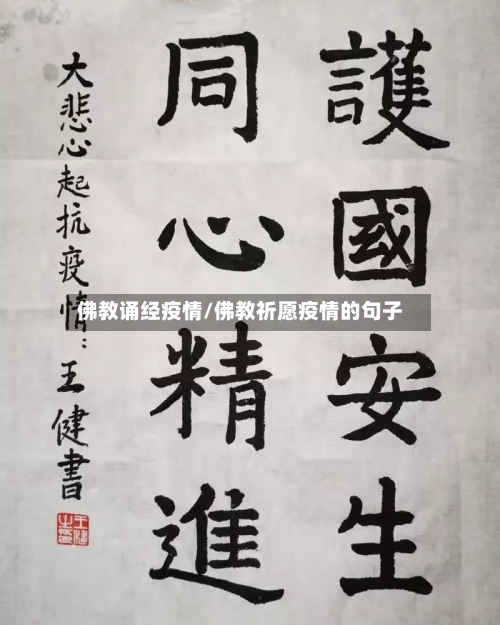 護國安生
同心精進
大悲心起抗疫情：王健書
佛教诵经疫情/佛教祈愿疫情的句子